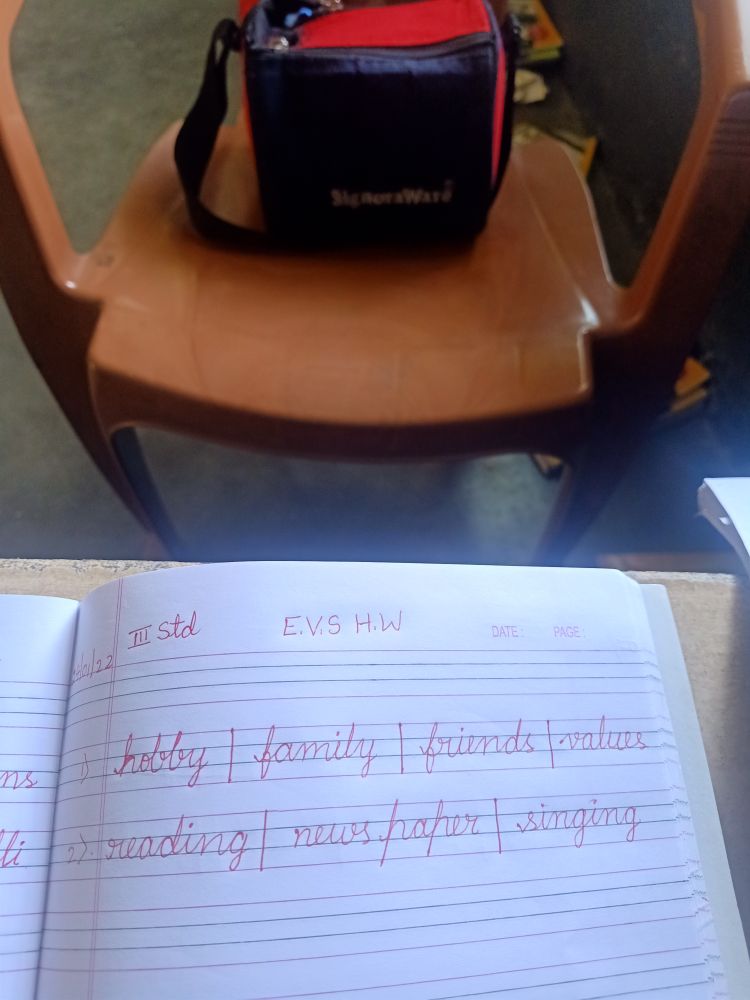 SignoraWare
III Std E.V.S H.W DATE: PAGE:
/22
ns
1) hobby | family | friends | values
li
2). reading | newspaper | singing